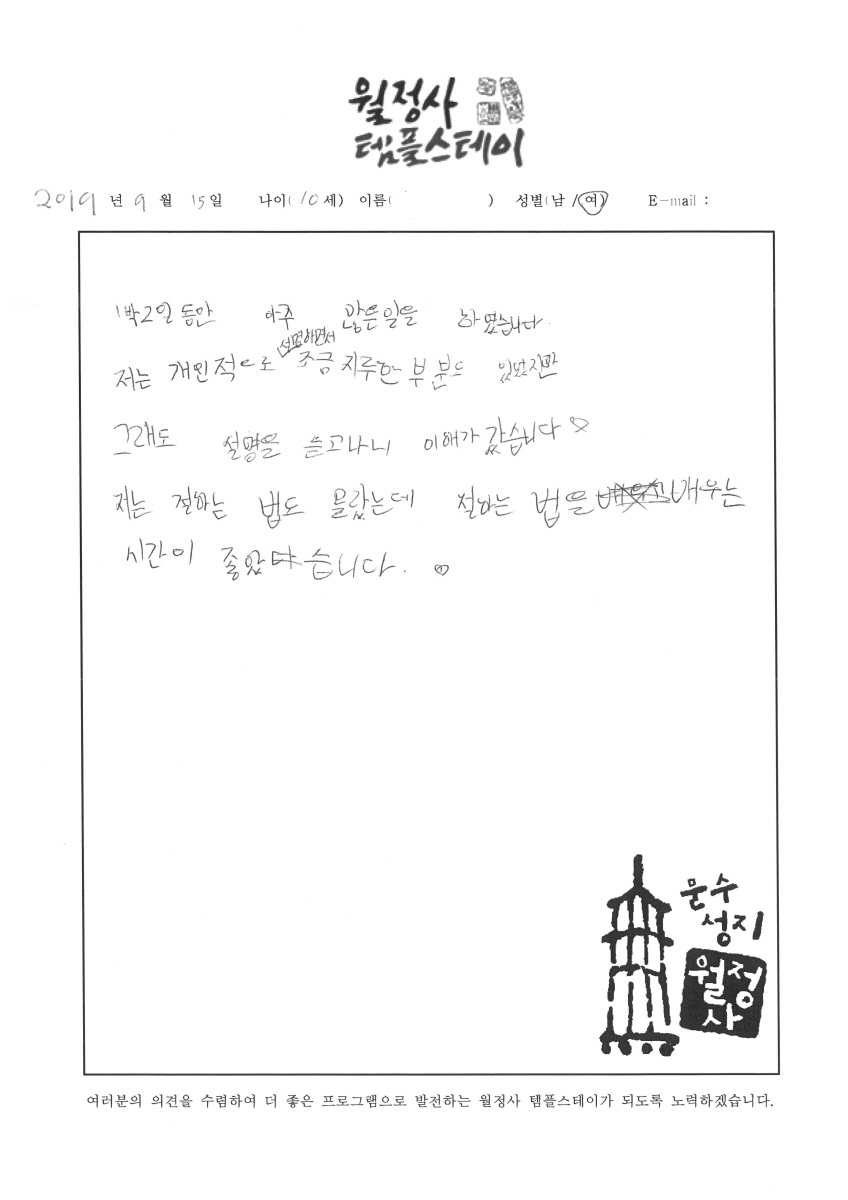 월정사
템플스테이
2019 년 9 월 15일 나이(10세) 이름( ) 성별(남/여) E-mail :
1박2일 동안 아주 많은일을 하였습니다.
설명하면서
저는 개인적으로 조금 지루한 부분도 있었지만
그래도 설명을 듣고나니 이해가 갔습니다♡
저는 절하는 법도 몰랐는데 절하는 법을 배우는
시간이 좋았습니다. ♡
문수
성지
월정
사
여러분의 의견을 수렴하여 더 좋은 프로그램으로 발전하는 월정사 템플스테이가 되도록 노력하겠습니다.